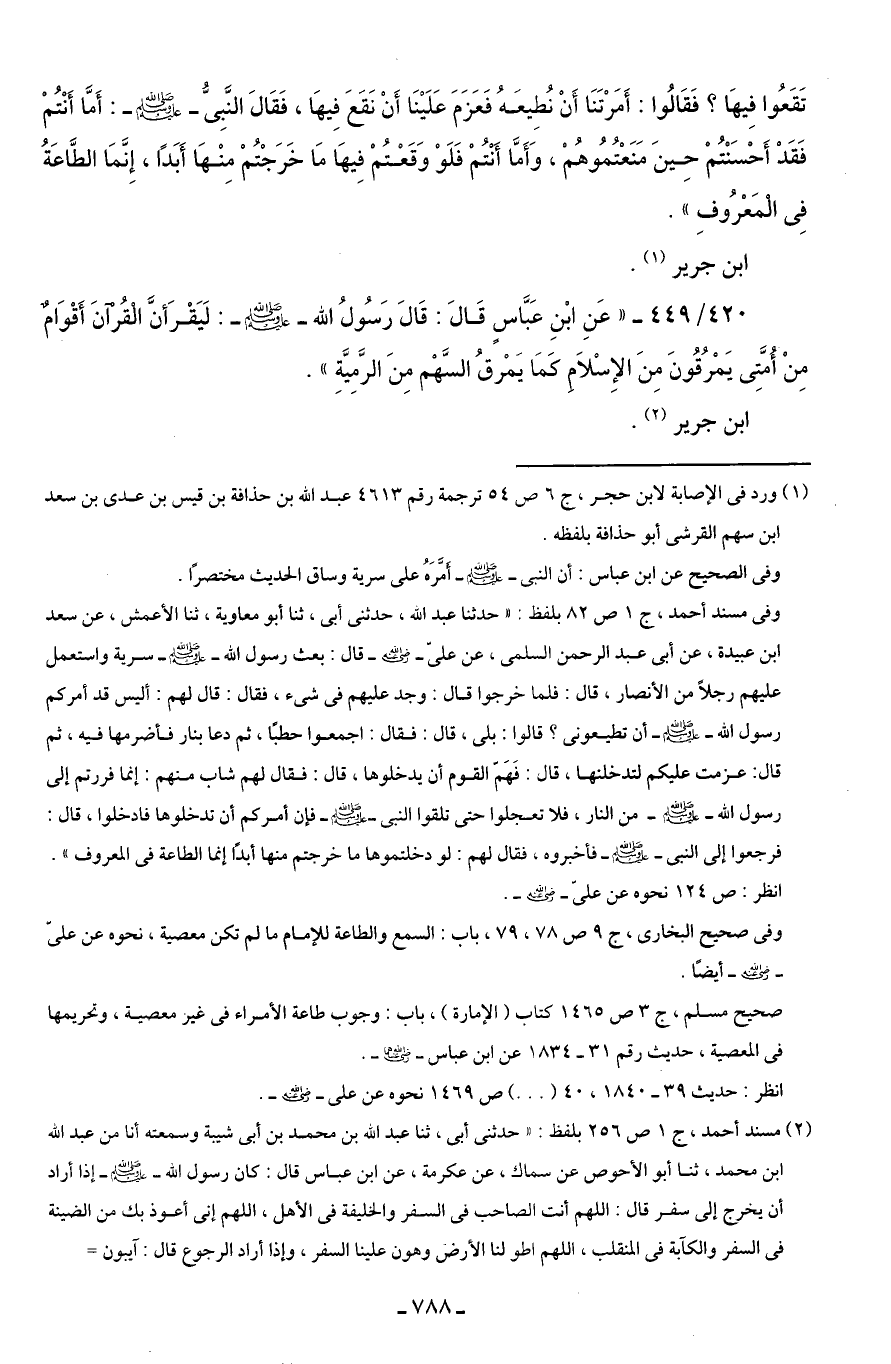 تَقَعُوا فِيهَا ؟ فَقَالُوا : أَمَرْتَنَا أَنْ نُطِيعَـهُ فَعَزَمَ عَلَيْنَا أَنْ نَقَعَ فِيهَا ، فَقَالَ النَّبِىُّ ـ ﷺ ـ : أَمَّا أَنْتُمْ
فَقَدْ أَحْسَنْتُمْ حِـينَ مَنَعْتُمُوهُمْ ، وَأَمَّا أَنْتُمْ فَلَوْ وَقَعْـتُمْ فِيهَا مَا خَرَجْتُمْ مِنْـهَا أَبَدًا ، إِنَّمَا الطَّاعَةُ
فِى الْمَعْرُوفِ » .
ابن جرير (١) .
٤٤٩/٤٢٠ ـ « عَنِ ابْنِ عَبَّاسٍ قَـالَ : قَالَ رَسُولُ الله ـ ﷺ ـ : لَيَقْـرَأنَّ الْقُرْآنَ أَقْوَامٌ
مِنْ أُمَّتِى يَمْرُقُونَ مِنَ الإِسْلاَمِ كَمَا يَمْرقُ السَّهْم مِنَ الرَّمِيَّةِ » .
ابن جرير (٢) .
(١) ورد فى الإصابة لابن حجـر ، ج ٦ ص ٥٤ ترجمة رقم ٤٦١٣ عبـد الله بن حذافة بن قيس بن عـدى بن سعد
ابن سهم القرشى أبو حذافة بلفظه .
وفى الصحيح عن ابن عباس : أن النبى ـ ﷺ ـ أَمَّرَهُ على سرية وساق الحديث مختصرًا .
وفى مسند أحمد ، ج ١ ص ٨٢ بلفظ : « حدثنا عبد الله ، حدثنى أبى ، ثنا أبو معاوية ، ثنا الأعمش ، عن سعد
ابن عبيدة ، عن أبى عبـد الرحمن السلمى ، عن علىّ ـ رضي الله عنه ـ قال : بعث رسول الله ـ ﷺ ـ سـرية واستعمل
عليهم رجلاً من الأنصار ، قال : فلما خرجوا قـال : وجد عليهم فى شىء ، فقال : قال لهم : أليس قد أمركم
رسول الله ـ ﷺ ـ أن تطيـعونى ؟ قالوا : بلى ، قال : فـقال : اجمعـوا حطبًا ، ثم دعا بنار فـأضرمها فيه ، ثم
قال: عـزمت عليكم لتدخلنهـا ، قال : فَهَمّ القوم أن يدخلوها ، قال : فـقال لهم شاب منـهم : إنما فررتم إلى
رسول الله ـ ﷺ ـ من النار ، فلا تعـجلوا حتى تلقوا النبى ـ ﷺ ـ فإن أمـركم أن تدخلوها فادخلوا ، قال :
فرجعوا إلى النبى ـ ﷺ ـ فأخبروه ، فقال لهم : لو دخلتموها ما خرجتم منها أبدًا إنما الطاعة فى المعروف » .
انظر : ص ١٢٤ نحوه عن علىّ ـ رضي الله عنه ـ .
وفى صحيح البخارى ، ج ٩ ص ٧٨ ، ٧٩ ، باب : السمع والطاعة للإمام ما لم تكن معصية ، نحوه عن علىّ
ـ رضي الله عنه ـ أيضًا .
صحيح مسـلم ، ج ٣ ص ١٤٦٥ كتاب ( الإمارة ) ، باب : وجوب طاعة الأمـراء فى غير معصيـة ، وتحريمها
فى المعصية ، حديث رقم ٣١ ـ ١٨٣٤ عن ابن عباس ـ رضي الله عنهما ـ .
انظر : حديث ٣٩ ـ ١٨٤٠ ، ٤٠ ( . . . ) ص ١٤٦٩ نحوه عن على ـ رضي الله عنه ـ .
(٢) مسند أحمد ، ج ١ ص ٢٥٦ بلفظ : « حدثنى أبى ، ثنا عبد الله بن محمـد بن أبى شيبة وسمعته أنا من عبد الله
ابن محمد ، ثنـا أبو الأحوص عن سماك ، عن عكرمة ، عن ابن عبـاس قال : كان رسول الله ـ ﷺ ـ إذا أراد
أن يخرج إلى سفـر قال : اللهم أنت الصاحب فى السـفر والخليفة فى الأهل ، اللهم إنى أعـوذ بك من الضينة
فى السفر والكآبة فى المنقلب ، اللهم اطو لنا الأرض وهون علينا السفر ، وإذا أراد الرجوع قال : آيبون =
ـ ٧٨٨ ـ